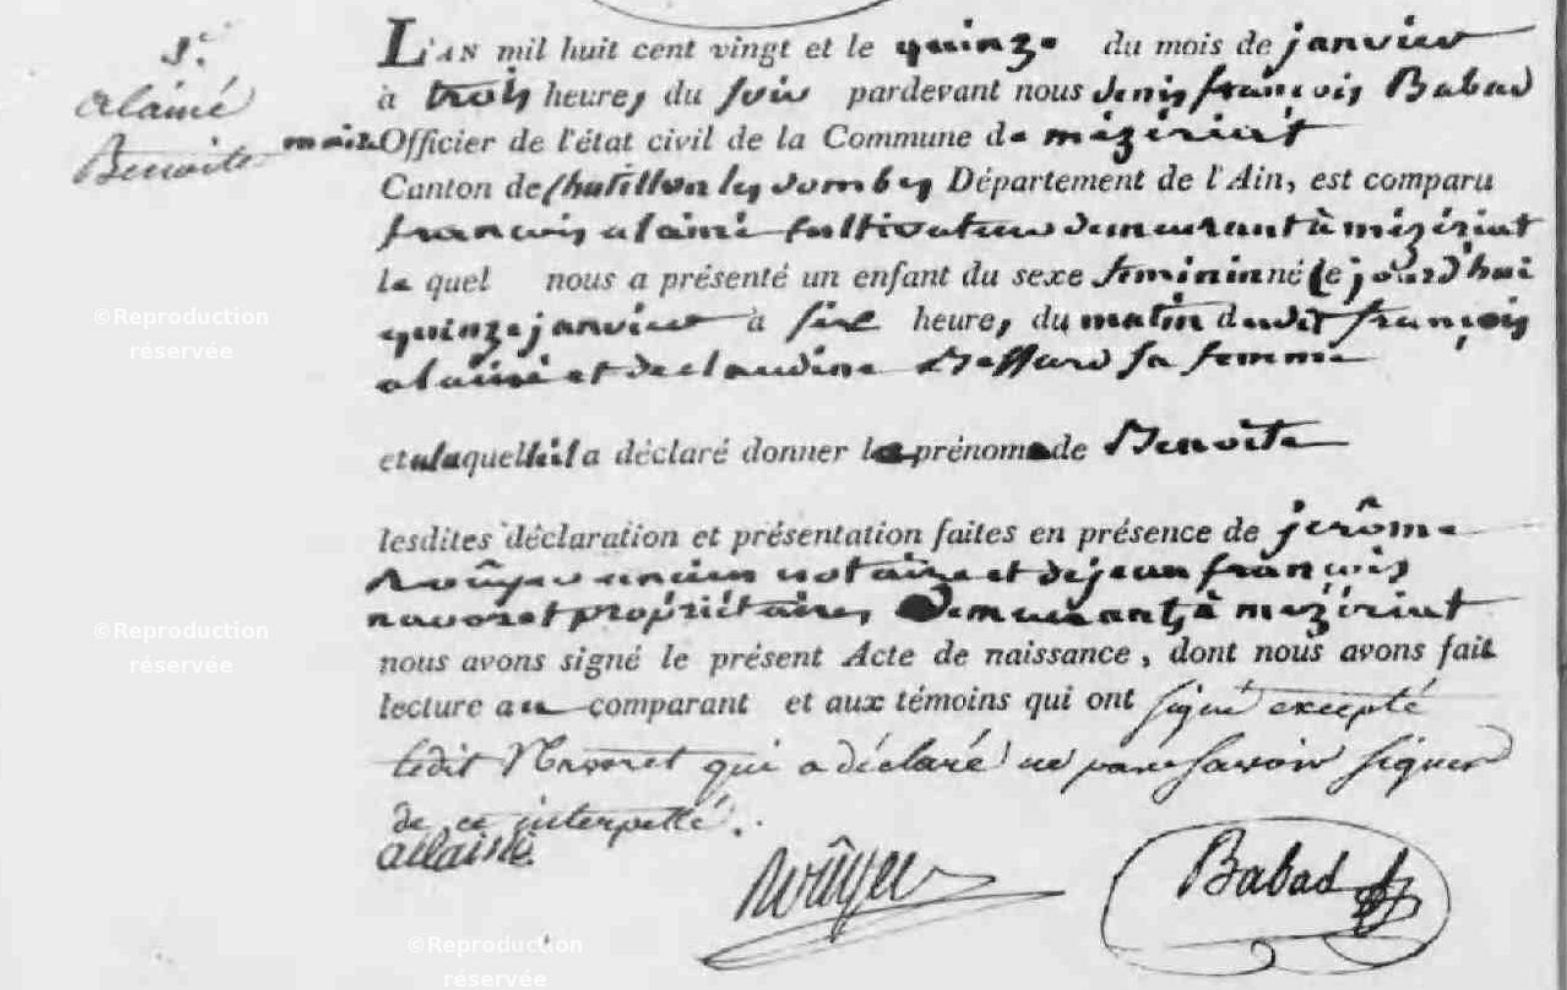 3.e
alainé
Benoite
L'AN mil huit cent vingt et le quinze du mois de janvier
à trois heures du soir pardevant nous denis françois Babad
maire Officier de l'état civil de la Commune de mézériat
Canton de Chatillon les dombes Département de l'Ain, est comparu
françois alainé cultivateur demeurant à mézériat
le quel nous a présenté un enfant du sexe feminin né cejourd'hui
quinze janvier à six heures du matin dudit françois
alainé et de claudine Beffard sa femme
et à laquelle il a déclaré donner le prénom de Benoite
lesdites déclaration et présentation faites en présence de jerôme
Roûyer ancien notaire et de jean françois
navoret propriétaires demeurants à mézériat
nous avons signé le présent Acte de naissance, dont nous avons fait
lecture au comparant et aux témoins qui ont signé excepté
ledit Navoret qui a déclaré ne pas savoir signer
de ce interpellé.
alainé
Roûyer
Babad
©Reproduction
réservée
©Reproduction
réservée
©Reproduction
réservée